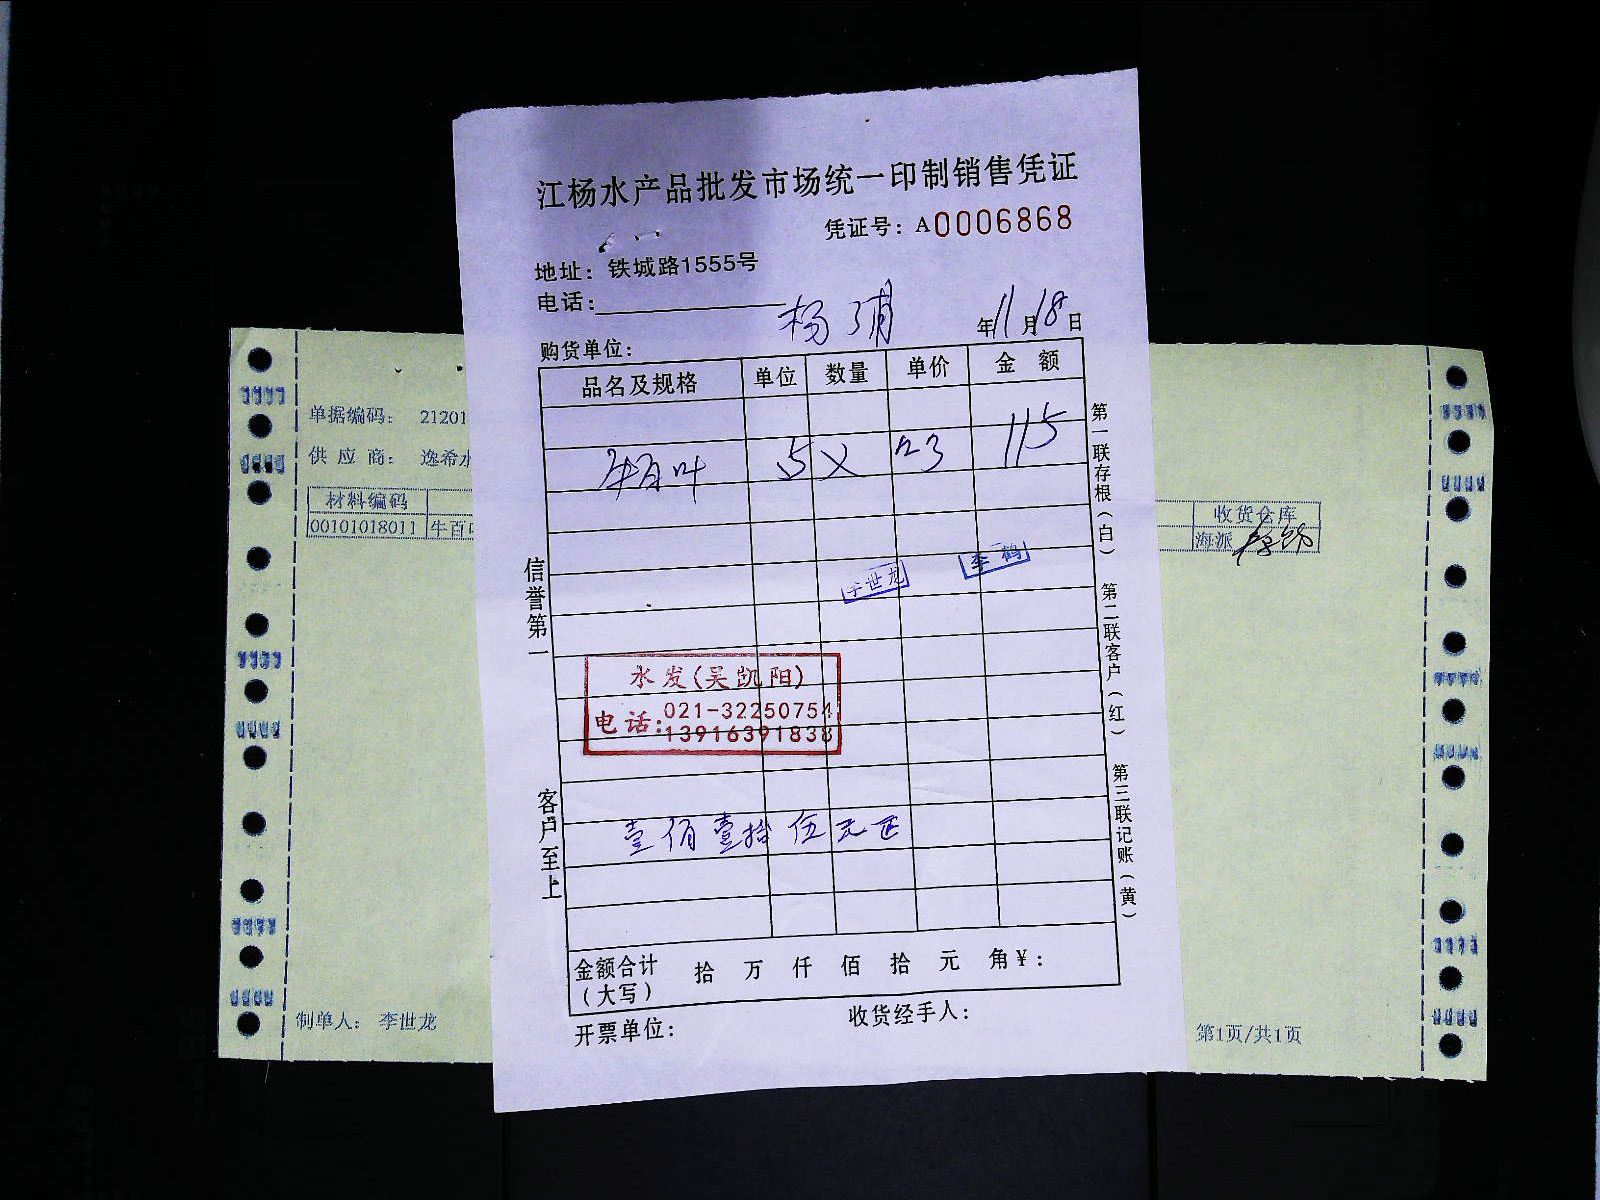 江杨水产品批发市场统一印制销售凭证
凭证号：A0006868
地址：铁城路1555号
电话：
购货单位：杨浦 年11月18日
品名及规格 单位 数量 单价 金额
牛百叶 5 × 23 115
李世龙 李鹤
水发(吴凯阳)
电话:021-32250754
13916391838
壹佰壹拾伍元正
金额合计 拾 万 仟 佰 拾 元 角￥：
（大写）
开票单位： 收货经手人：
信誉第一
客户至上
第一联存根（白）
第二联客户（红）
第三联记账（黄）
单据编码： 21201
供 应 商： 逸希水
材料编码
00101018011 牛百叶
收货仓库
海派
制单人： 李世龙
第1页/共1页